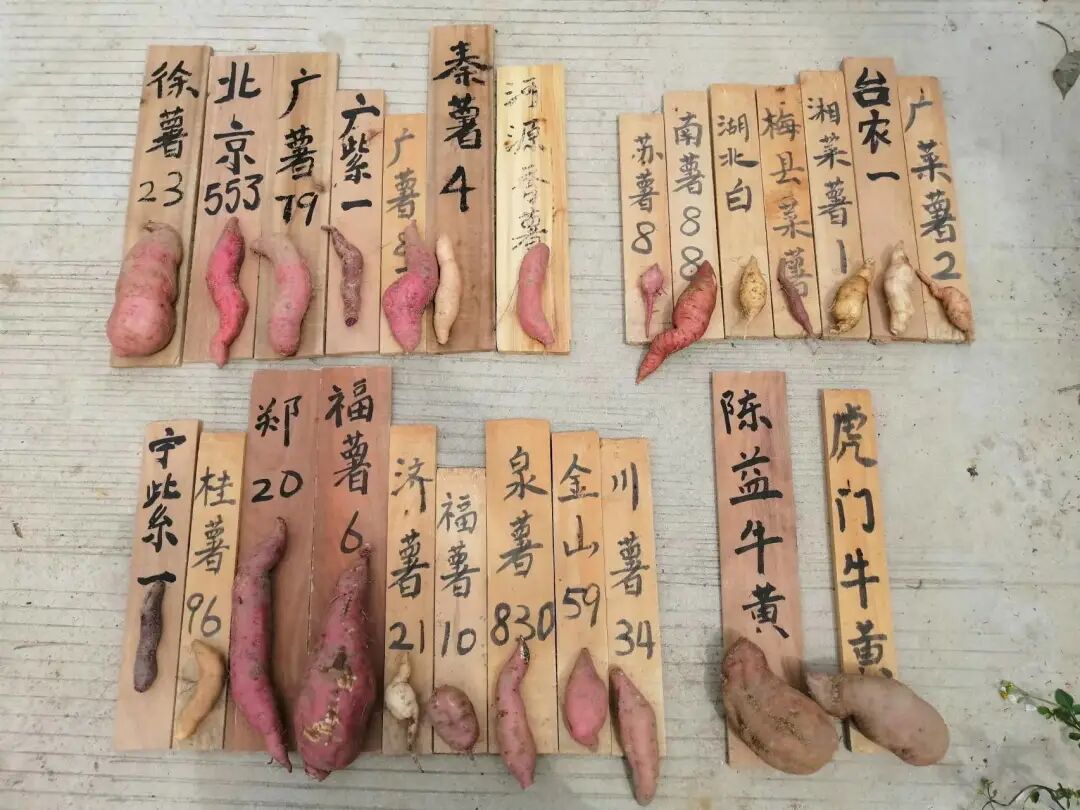 徐薯23
北京553
广薯79
广紫一
广薯8
秦薯4
河源番薯
苏薯8
南薯88
湖北白
梅县菜薯
湘菜薯1
台农一
广菜薯2
宁紫一
桂薯96
郑20
福薯6
济薯21
福薯10
泉薯830
金山59
川薯34
陈益牛黄
虎门牛黄